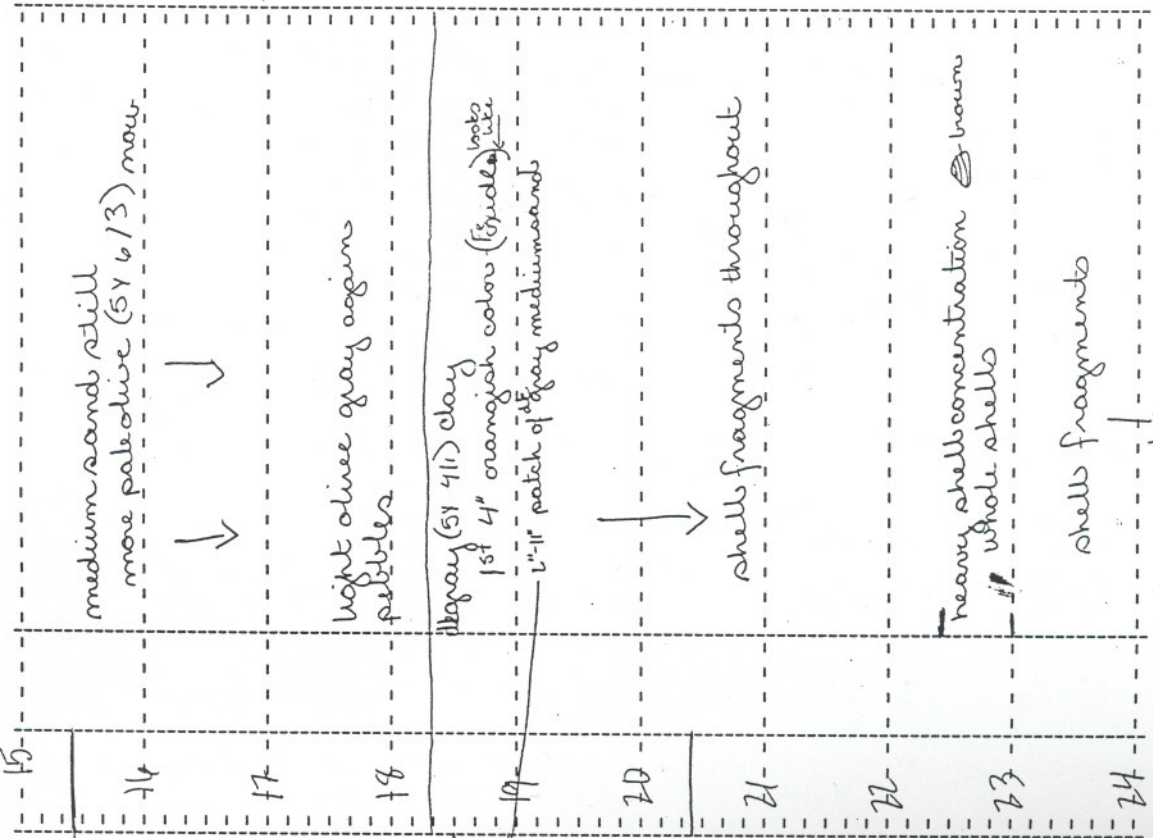 15
medium sand still
more pale olive (5Y 6/3) now
16
17
light olive gray again
pebbles
18
dkgray (5Y 4/1) clay
1st 4" orangish color (Fe oxide) looks like
19
2"-11" patch of dk gray medium sand
20
shell fragments throughout
21
22
heavy shell concentration brown
whole shells
23
shell fragments
24